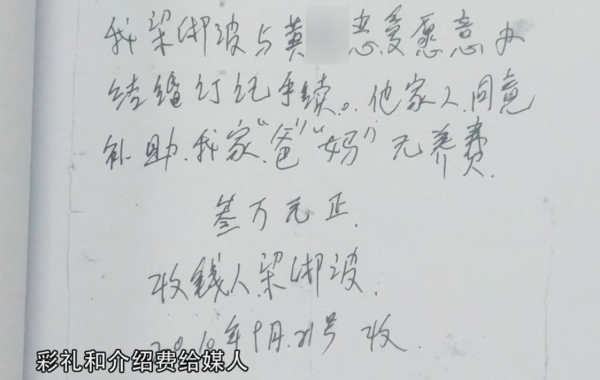 我梁𬘡波与黄 恋爱愿意办
结婚灯记手续。他家人同意
补助.我家"爸""妈"元养费.
叁万元正.
收钱人梁 波.
年 月.21号 收.
彩礼和介绍费给媒人